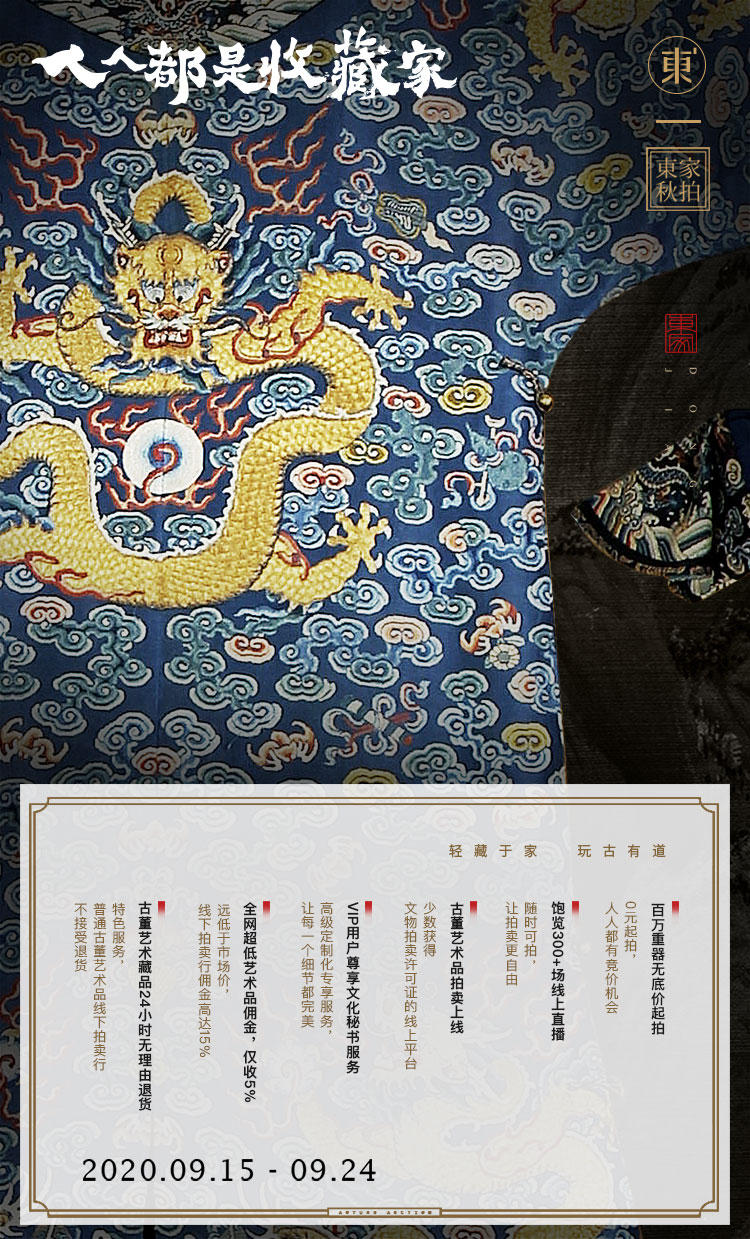 人人都是收藏家
東
東家
秋拍
東家
DONG
JIA
轻藏于家 玩古有道
百万重器无底价起拍
0元起拍，
人人都有竞价机会
饱览300+场线上直播
随时可拍，
让拍卖更自由
古董艺术品拍卖上线
少数获得
文物拍卖许可证的线上平台
VIP用户尊享文化秘书服务
高级定制化专享服务，
让每一个细节都完美
全网超低艺术品佣金，仅收5%
远低于市场价，
线下拍卖行佣金高达15%
古董艺术藏品24小时无理由退货
特色服务，
普通古董艺术品线下拍卖行
不接受退货
2020.09.15 - 09.24
AUTUMN AUCTION